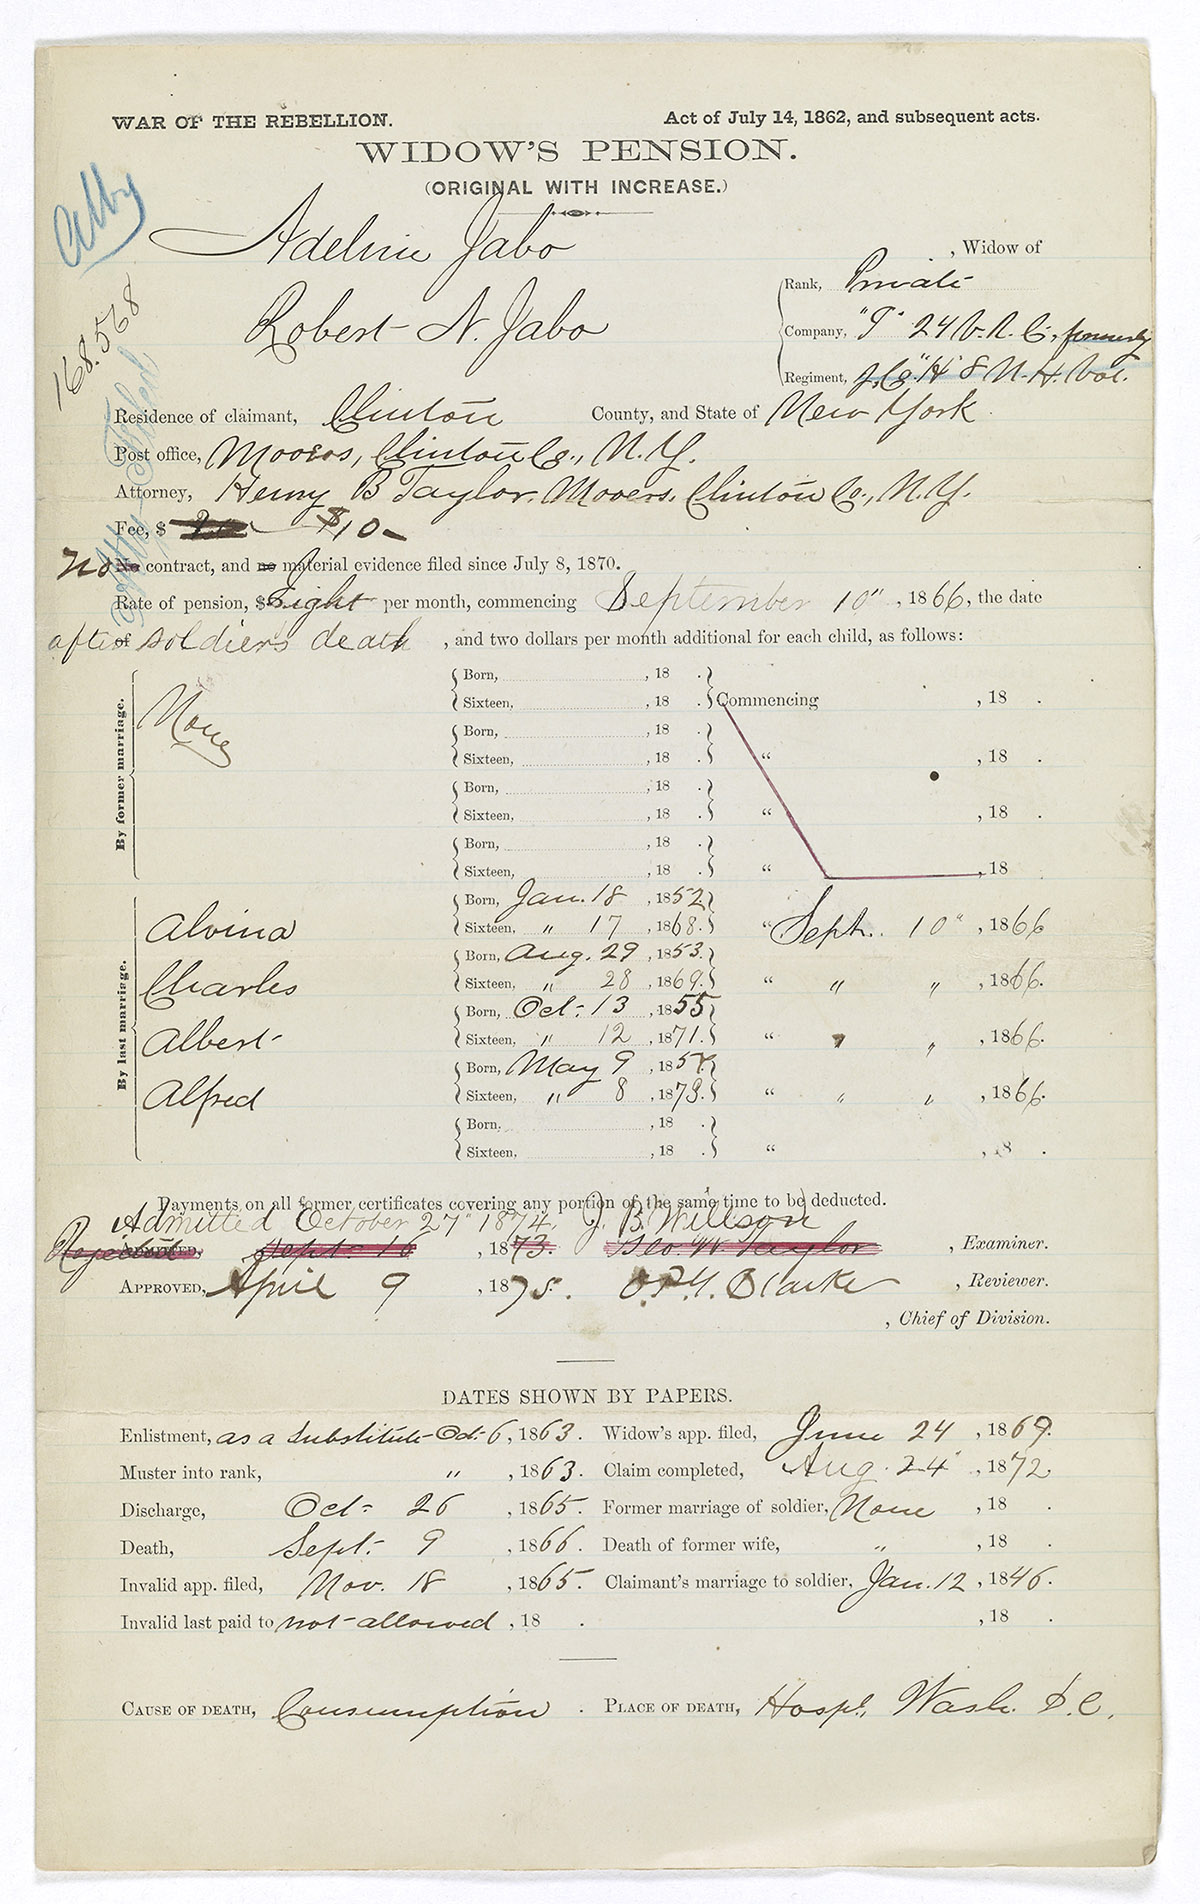 WAR OF THE REBELLION. Act of July 14, 1862, and subsequent acts.
WIDOW'S PENSION.
(ORIGINAL WITH INCREASE.)
Adeline Jabo , Widow of
Robert N. Jabo
Rank, Private
Company, 24 V. R. C. formerly
Regiment, Co "H" 8 N. H. Vol.
168.568
Residence of claimant, Clinton County, and State of New York
Post office, Mooers, Clinton Co., N. Y.
Attorney, Henry B Taylor, Mooers, Clinton Co., N. Y.
Fee, $ $10-
No No contract, and no material evidence filed since July 8, 1870.
Rate of pension, $ Eight per month, commencing September 10", 1866, the date
after of soldier's death , and two dollars per month additional for each child, as follows:
By former marriage.
None
Born, , 18 .
Sixteen, , 18 . Commencing , 18 .
Born, , 18 .
Sixteen, , 18 . " , 18 .
Born, , 18 .
Sixteen, , 18 . " , 18 .
Born, , 18 .
Sixteen, , 18 . " , 18
By last marriage.
Born, Jan. 18 , 1852
Alvina Sixteen, " 17 , 1868. " Sept. 10" , 1866
Born, Aug. 29 , 1853.
Charles Sixteen, " 28 , 1869. " " " , 1866.
Born, Oct. 13 , 1855
Albert Sixteen, " 12 , 1871. " " " , 1866.
Born, May 9 , 1857.
Alfred Sixteen, " 8 , 1873. " " " , 1866.
Born. , 18 .
Sixteen, , 18 . " , 18 .
Payments on all former certificates covering any portion of the same time to be deducted.
Admitted October 27" 1874. J. B. Willson
Rejected Sept 16 , 1873. Geo W. Taylor , Examiner.
APPROVED, April 9 , 1875. Clarke , Reviewer.
, Chief of Division.
DATES SHOWN BY PAPERS.
Enlistment, as a Substitute Oct. 6, 1863. Widow's app. filed, June 24 , 1869.
Muster into rank, " , 1863. Claim completed, Aug. 24 , 1872.
Discharge, Oct. 26 , 1865. Former marriage of soldier, None , 18 .
Death, Sept. 9 , 1866. Death of former wife, " , 18 .
Invalid app. filed, Nov. 18 , 1865. Claimant's marriage to soldier, Jan. 12 , 1846.
Invalid last paid to not allowed , 18 . , 18 .
CAUSE OF DEATH, Consumption . PLACE OF DEATH, Hospl. Wash. D.C.